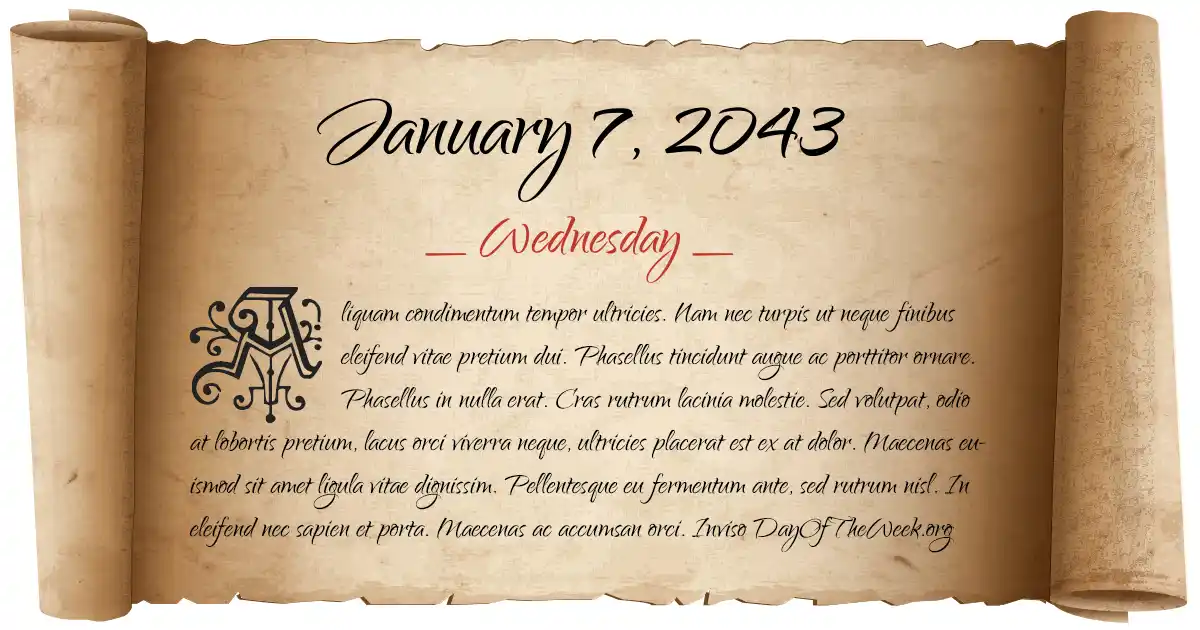 January 7, 2043
Wednesday
Aliquam condimentum tempor ultricies. Nam nec turpis ut neque finibus
eleifend vitae pretium dui. Phasellus tincidunt augue ac porttitor ornare.
Phasellus in nulla erat. Cras rutrum lacinia molestie. Sed volutpat, odio
at lobortis pretium, lacus orci viverra neque, ultricies placerat est ex at dolor. Maecenas eu-
ismod sit amet ligula vitae dignissim. Pellentesque eu fermentum ante, sed rutrum nisl. In
eleifend nec sapien et porta. Maecenas ac accumsan orci. Inviso DayOfTheWeek.org